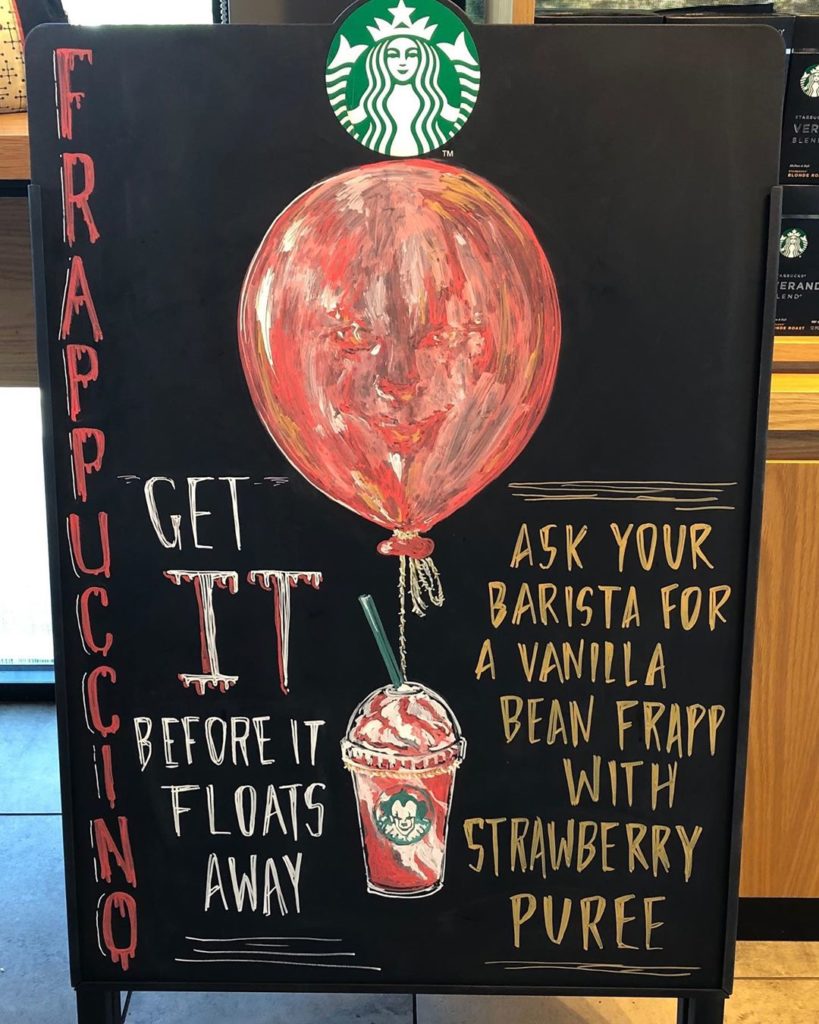 FRAPPUCCINO
TM
GET
IT
BEFORE IT
FLOATS
AWAY
ASK YOUR
BARISTA FOR
A VANILLA
BEAN FRAPP
WITH
STRAWBERRY
PUREE
BLONDE RO
ERAND
LEND